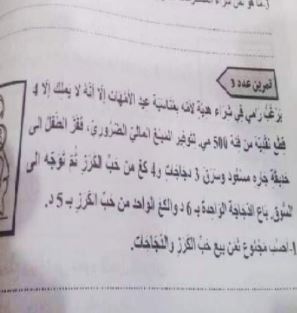 تمرين عدد 3
يَرْغَبُ رَامِي فِي شِرَاءِ هَدِيَّةٍ لِأُمِّهِ بِمُنَاسَبَةِ عِيدِ الأُمَّهَاتِ إِلَّا أَنَّهُ لَا يَمْلِكُ إِلَّا 4
قِطَعٍ نَقْدِيَّةٍ مِنْ فِئَةِ 500 مي. لِتَوْفِيرِ المَبْلَغِ المَالِيِّ الضَّرُورِيِّ، قَفَزَ الطِّفْلُ إِلَى
حَدِيقَةِ جَارِهِ مَسْعُود وَسَرَقَ 3 دَجَاجَاتٍ و4 كغ مِنْ حَبِّ الكَرَزِ ثُمَّ تَوَجَّهَ إِلَى
السُّوقِ. بَاعَ الدَّجَاجَةَ الوَاحِدَةَ بِـ 6 د والكغ الوَاحِد مِنْ حَبِّ الكَرَزِ بِـ 5 د.
1- اُحْسُبْ مَجْمُوعَ ثَمَنِ بَيْعِ حَبِّ الكَرَزِ وَالدَّجَاجَاتِ.